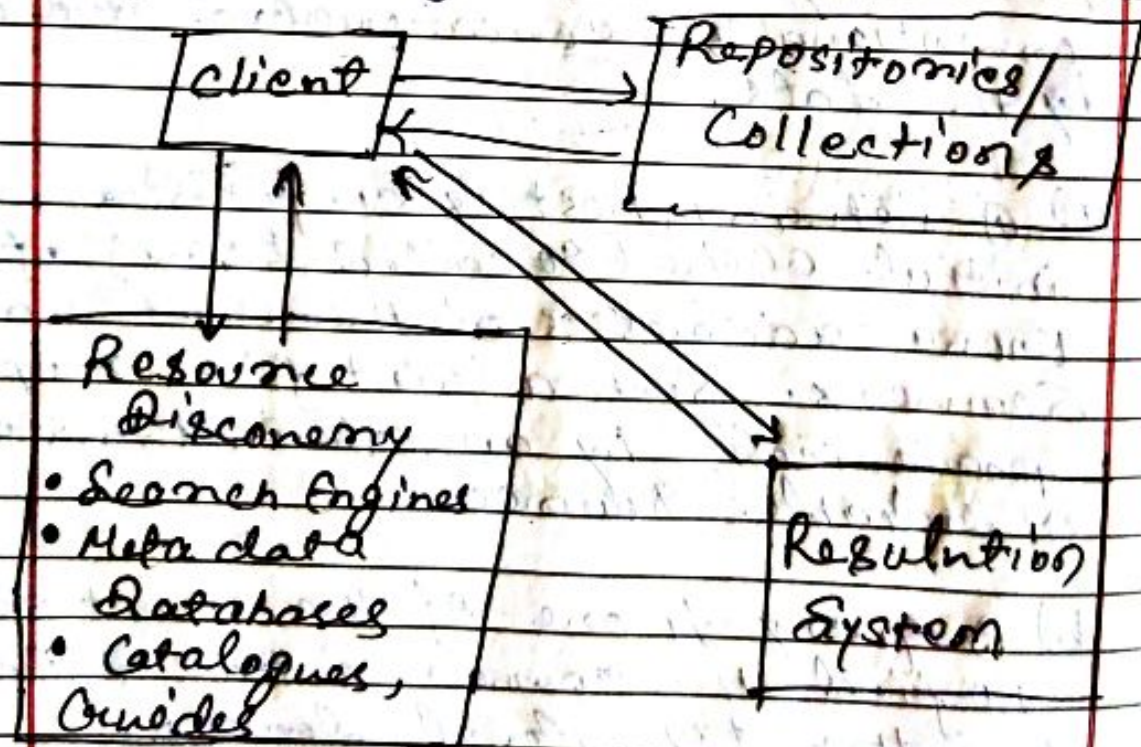 Client
Repositories/
Collections
Resource
Discovery
• Search Engines
• Meta data
Databases
• Catalogues,
Guides
Resulution
System